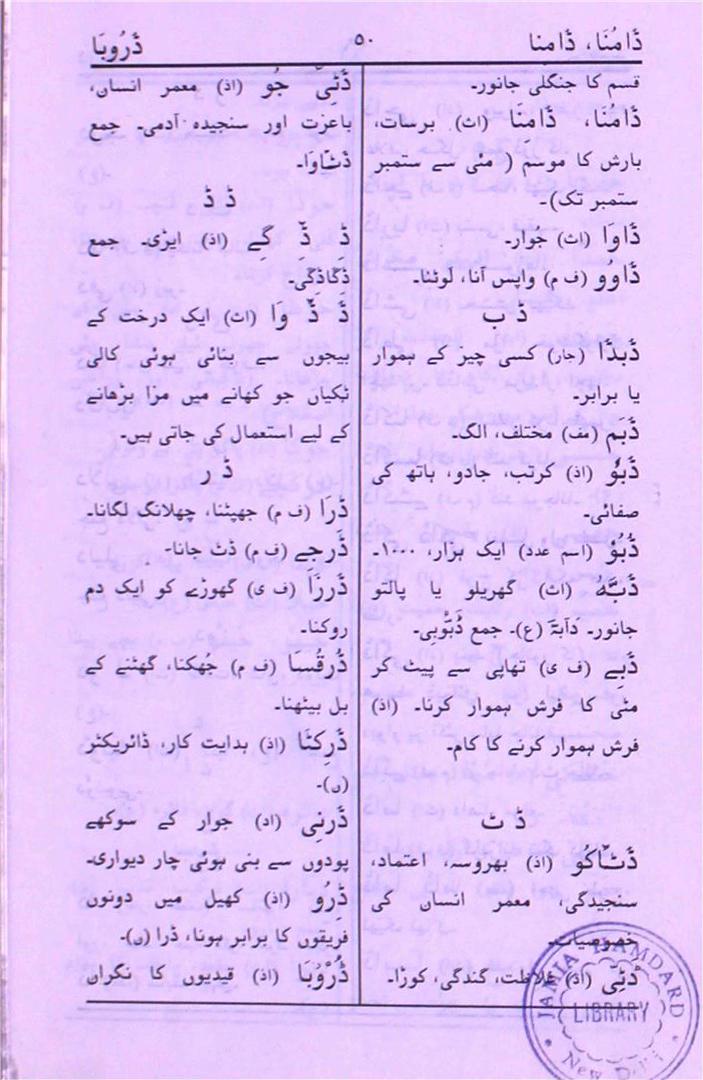 ڈامُنَا، ڈامِنا
۵۰
ڈرُوبَا
قسم کا جنگلی جانور۔
ڈامُنَا، ڈامِنَا (اث) برسات،
بارش کا موسم (مئی سے ستمبر
ستمبر تک)۔
ڈاوَا (اث) جوار۔
ڈاوُو (ف م) واپس آنا، لَوٹنا۔
ڈ ب
ڈَبدَّا (جار) کسی چیز کے ہموار
یا برابر۔
ڈَبَم (مف) مختلف، الگ۔
ڈَبُّو (اذ) کرتب، جادو، ہاتھ کی
صفائی۔
ڈُبُوْ (اسم عدد) ایک ہزار، ۱۰۰۰۔
(اث) گھریلو یا پالتو
جانور۔ دَابَۃ (ع)۔ جمع ڈَبُّوبِی۔
ڈَبے (ف ی) تھاپی سے پیٹ کر
مٹی کا فرش ہموار کرنا۔ (اذ)
فرش ہموار کرنے کا کام۔
ڈ ٹ
ڈَٹَاکُو (اذ) بھروسہ، اعتماد،
سنجیدگی، معمر انسان کی
خصوصیات۔
ڈَٹِی (اذ) غلاظت، گندگی، کوڑا۔
ڈَٹِی جُو (اذ) معمر انسان،
باعزت اور سنجیدہ آدمی۔ جمع
ڈٹاوَا۔
ڈ ڈ
ڈ ڈِ گے (اذ) ایڑی۔ جمع
ڈگاڈِگی۔
ڈَ ڈَ وَا (اث) ایک درخت کے
بیجوں سے بنائی ہوئی کالی
ٹکیاں جو کھانے میں مزا بڑھانے
کے لیے استعمال کی جاتی ہیں۔
ڈ ر
ڈَرَا (ف م) جھپٹنا، چھلانگ لگانا۔
ڈَرجے (ف م) ڈٹ جانا۔
ڈَررَّا (ف ی) گھوڑے کو ایک دم
روکنا۔
ڈُرقُسا (ف م) جُھکنا، گھٹنے کے
بل بیٹھنا۔
ڈَرِکتَا (اذ) ہدایت کار، ڈائریکٹر
(ں)۔
ڈَرنِی (اد) جوار کے سوکھے
پودوں سے بنی ہوئی چار دیواری۔
ڈَرُو (اذ) کھیل میں دونوں
فریقوں کا برابر ہونا، ڈرا (ں)۔
ڈُرُوْبَا (اذ) قیدیوں کا نگراں
JAMIA HAMDARD
LIBRARY
New Delhi